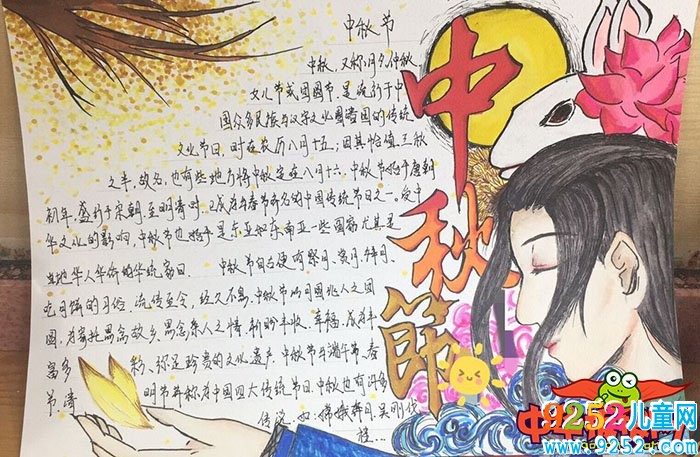 中秋节
中秋節
中秋,又称月夕、仲秋
女儿节或团圆节,是流行于中
国众多民族与汉字文化圈诸国的传统
文化节日,时在农历八月十五;因其恰值三秋
之半,故名,也有些地方将中秋定在八月十六。中秋节始于唐朝
初年,盛行于宋朝,至明清时,已成为与春节齐名的中国传统节日之一。受中
华文化的影响,中秋节也是东亚和东南亚一些国家尤其是
当地华人华侨的传统节日。中秋节自古便有祭月、赏月、拜月、
吃月饼的习俗,流传至今,经久不息。中秋节以月圆兆人之团
圆,为寄托思念故乡,思念亲人之情,祈盼丰收、幸福,成为丰
富多彩、弥足珍贵的文化遗产。中秋节与端午节、春
节、清明节并称为中国四大传统节日。中秋也有许多
传说,如:嫦娥奔月、吴刚伐
桂…
9252儿童网
www.9252.com